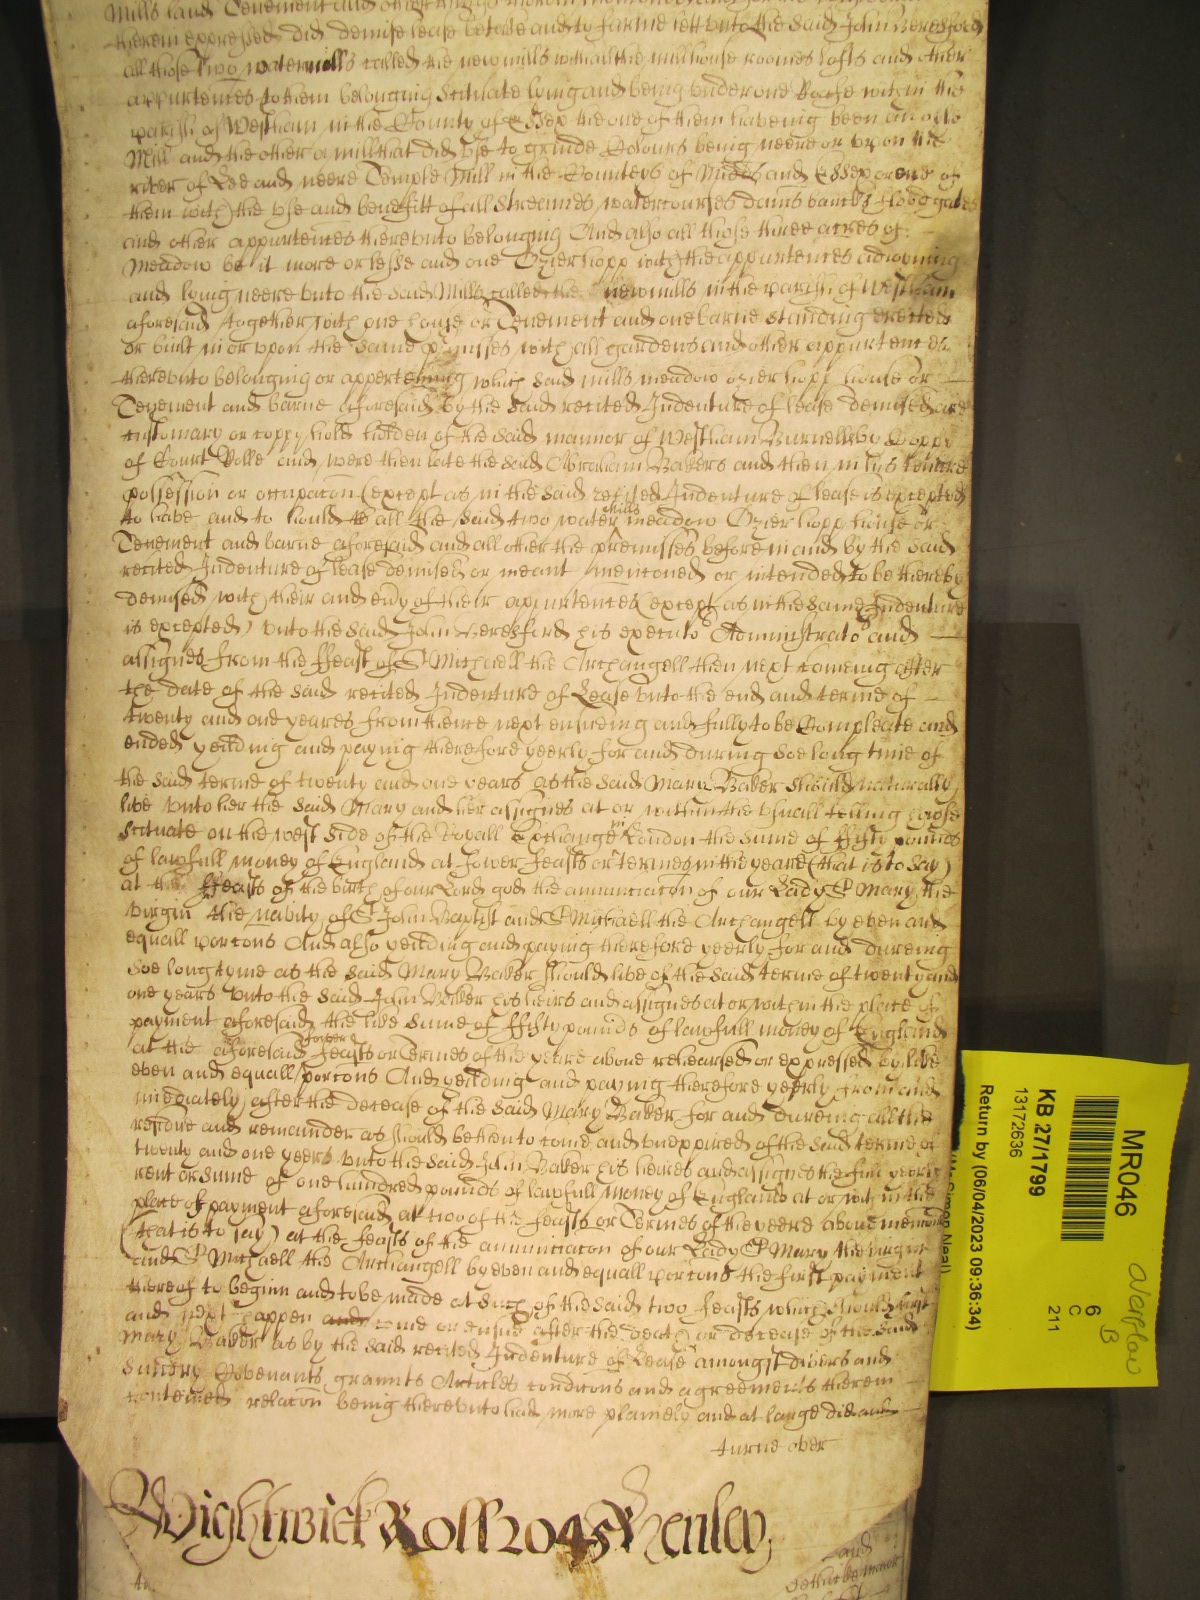 Mills land Tenement and other things therein
therein expressed did demise lease betake and to farme lett unto the said John Beresford
all those two watermills called the new mills with all the millhouse roomes lofts and other
appurtences to them belonging scituate lying and being under one Roofe within the
parish of Westham in the County of Essex the one of them haveing been an
Mill and the other a mill that did use to grinde Colours being neere or upon the
river of Lee and neere Temple Mill in the Countyes of Midds and Essex or one of
them with the use and benefitt of all Streames watercourses dams bancks flood gates
and other appurtences thereunto belonging And also all those three acres of
Meadow be it more or lesse and one Ozier hopp with the appurtences adioyning
and lying neere unto the said Mills called the new mills in the parish of Westham
aforesaid together with one house or Tenement and one barne standing erected
or built in or upon the same premisses with all gardens and other appurtences
thereunto belonging or apperteining which said mills meadow ozier hopp house or
Tenement and barne aforesaid by the said recited Indenture of lease demised are
customary or coppyhold holden of the said mannor of Westham Burnells by Coppy
of Court Rolle and were then late the said Abraham Bakers and then in his tenure
possession or occupacon (except as in the said recited Indenture of lease is excepted
to have and to hould all the said two water mills meadow Ozier hopp house or
Tenement and barne aforesaid and all other the premisses before in and by the said
recited Indenture of lease demised or meant mentoned or intended to be thereby
demised with their and every of their appurtences (except as in the same Indenture
is excepted) unto the said John Beresford his executors Administrators and
assignes from the ffeast of St Michaell the Archangell then next comeing after
the date of the said recited Indenture of Lease unto the end and terme of
twenty and one yeares from thence next ensueing and fully to be Compleate and
ended yeilding and paying therefore yeerly for and during soe long time of
the said terme of twenty and one years as the said Mary Baker should naturally
live unto her the said Mary and her assignes at or within the usuall telling house
scituate on the west side of the Royall Exchange in London the summe of ffifty pounds
of lawfull money of England at fower feasts or termes in the yeare (that is to say)
at the ffeasts of the birth of our Lord god the annunciacon of our Lady St Mary the
virgin the nativity of St John Baptist and St Michaell the Archangell by even and
equall porcons And also yeilding and paying therefore yeerly for and dureing
soe long tyme as the said Mary Baker should live of the said terme of twenty and
one years unto the said John Baker his heirs and assignes at or within the place of
payment aforesaid the like summe of ffifty pounds of lawfull money of England
at the aforesaid fower feasts or Termes of the yeare above rehearsed or expressed by like
even and equall porcons And yeilding and paying therefore yeerly from and
imediately after the decease of the said Mary Baker for and dureing all the
residue and remainder as should be then to come and unexpired of the said terme of
twenty and one years unto the said John Baker his heires and assignes the full yearly
rent or summe of one hundred pounds of lawfull money of England at or within the
place of payment aforesaid at two of the feasts or Termes of the yeere above mencond
(that is to say) at the feasts of the annunciacon of our Lady St Mary the virgin
and St Michaell the Archangell by even and equall porcons the first payment
thereof to beginn and to be made at such of the said two feasts which should first
and next happen and come or ensue after the death or decease of the said
Mary Baker as by the said recited Indenture of Lease amongst divers and
sundry Covenants graunts Articles condicons and agreements therein
conteined relacon being thereunto had more plainely and at large did and
turne over
Wightwick Roll 2045 Henley
and
MR046
KB 27/1799
13172636
Return by (06/04/2023 09:36:34)
Simon Neal)
6
C
211
B
overflow